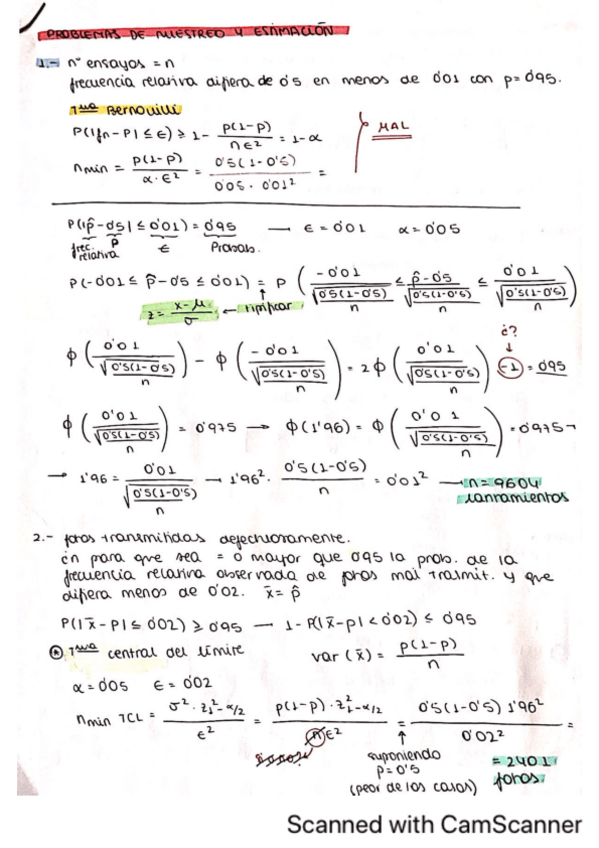 PROBLEMAS DE MUESTREO Y ESTIMACIÓN
1.- nº ensayos = n
frecuencia relativa difiera de 0'5 en menos de 0'01 con p= 0'95.
Tma Bernouilli
P(|fn - P| ≤ ε) ≥ 1 - p(1-p)/nε² = 1-α
MAL
nmin = p(1-p)/α·ε² = 0'5(1-0'5)/0'05·0'01² =
P(|p̂ - 0'5| ≤ 0'01) = 0'95 → ε = 0'01 α = 0'05
frec. relativa P ε Probab.
P(-0'01 ≤ p̂ - 0'5 ≤ 0'01) = P(-0'01/√(0'5(1-0'5)/n) ≤ p̂-0'5/√(0'5(1-0'5)/n) ≤ 0'01/√(0'5(1-0'5)/n))
z = x-μ/σ ← tipificar
¿?
ϕ(0'01/√(0'5(1-0'5)/n)) - ϕ(-0'01/√(0'5(1-0'5)/n)) = 2ϕ(0'01/√(0'5(1-0'5)/n)) -1 = 0'95
ϕ(0'01/√(0'5(1-0'5)/n)) = 0'975 → ϕ(1'96) = ϕ(0'01/√(0'5(1-0'5)/n)) = 0'975
→ 1'96 = 0'01/√(0'5(1-0'5)/n) → 1'96² · 0'5(1-0'5)/n = 0'01² → n = 9604
lanzamientos
2.- fotos transmitidas defectuosamente.
¿n para que sea = o mayor que 0'95 la prob. de la
frecuencia relativa observada de fotos mal trasmit. y que
difiera menos de 0'02. x̄ = p̂
P(|x̄ - P| ≤ 0'02) ≥ 0'95 → 1 - P(|x̄ - p| < 0'02) ≤ 0'95
Tma central del límite var(x̄) = p(1-p)/n
α = 0'05 ε = 0'02
nmin TCL = σ²·z²1-α/2/ε² = p(1-p)·z²1-α/2/nε² = 0'5(1-0'5)1'96²/0'02² =
suponiendo
p = 0'5
(peor de los casos)
= 2401
fotos.
Scanned with CamScanner